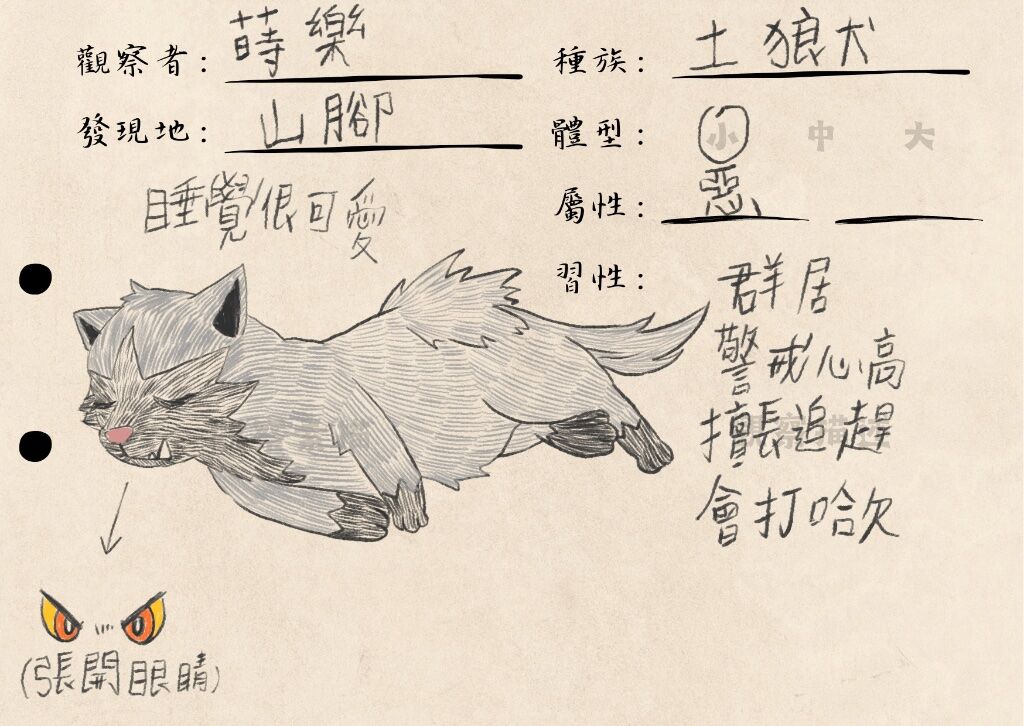 觀察者：蒔樂
發現地：山腳
種族：土狼犬
體型：小 中 大
屬性：惡
習性：群居
警戒心高
擅長追趕
會打哈欠
睡覺很可愛
(張開眼睛)